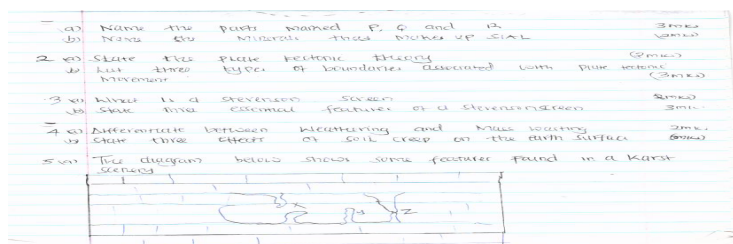 a) Name the parts marked P, Q and R 3mks
b) Name the minerals that makes up SIAL
2 a) State the plate tectonic theory (2mks)
b) List three types of boundaries associated with plate tectonic movement (3mks)
3 a) What is a stevenson screen 2mks
b) State three essential features of a stevenson screen 3mk
4 a) Differentiate between weathering and Mass wasting 2mks
b) State three effects of soil creep on the earth surface
5 a) The diagram below shows some features found in a Karst scenery
X
Y
Z